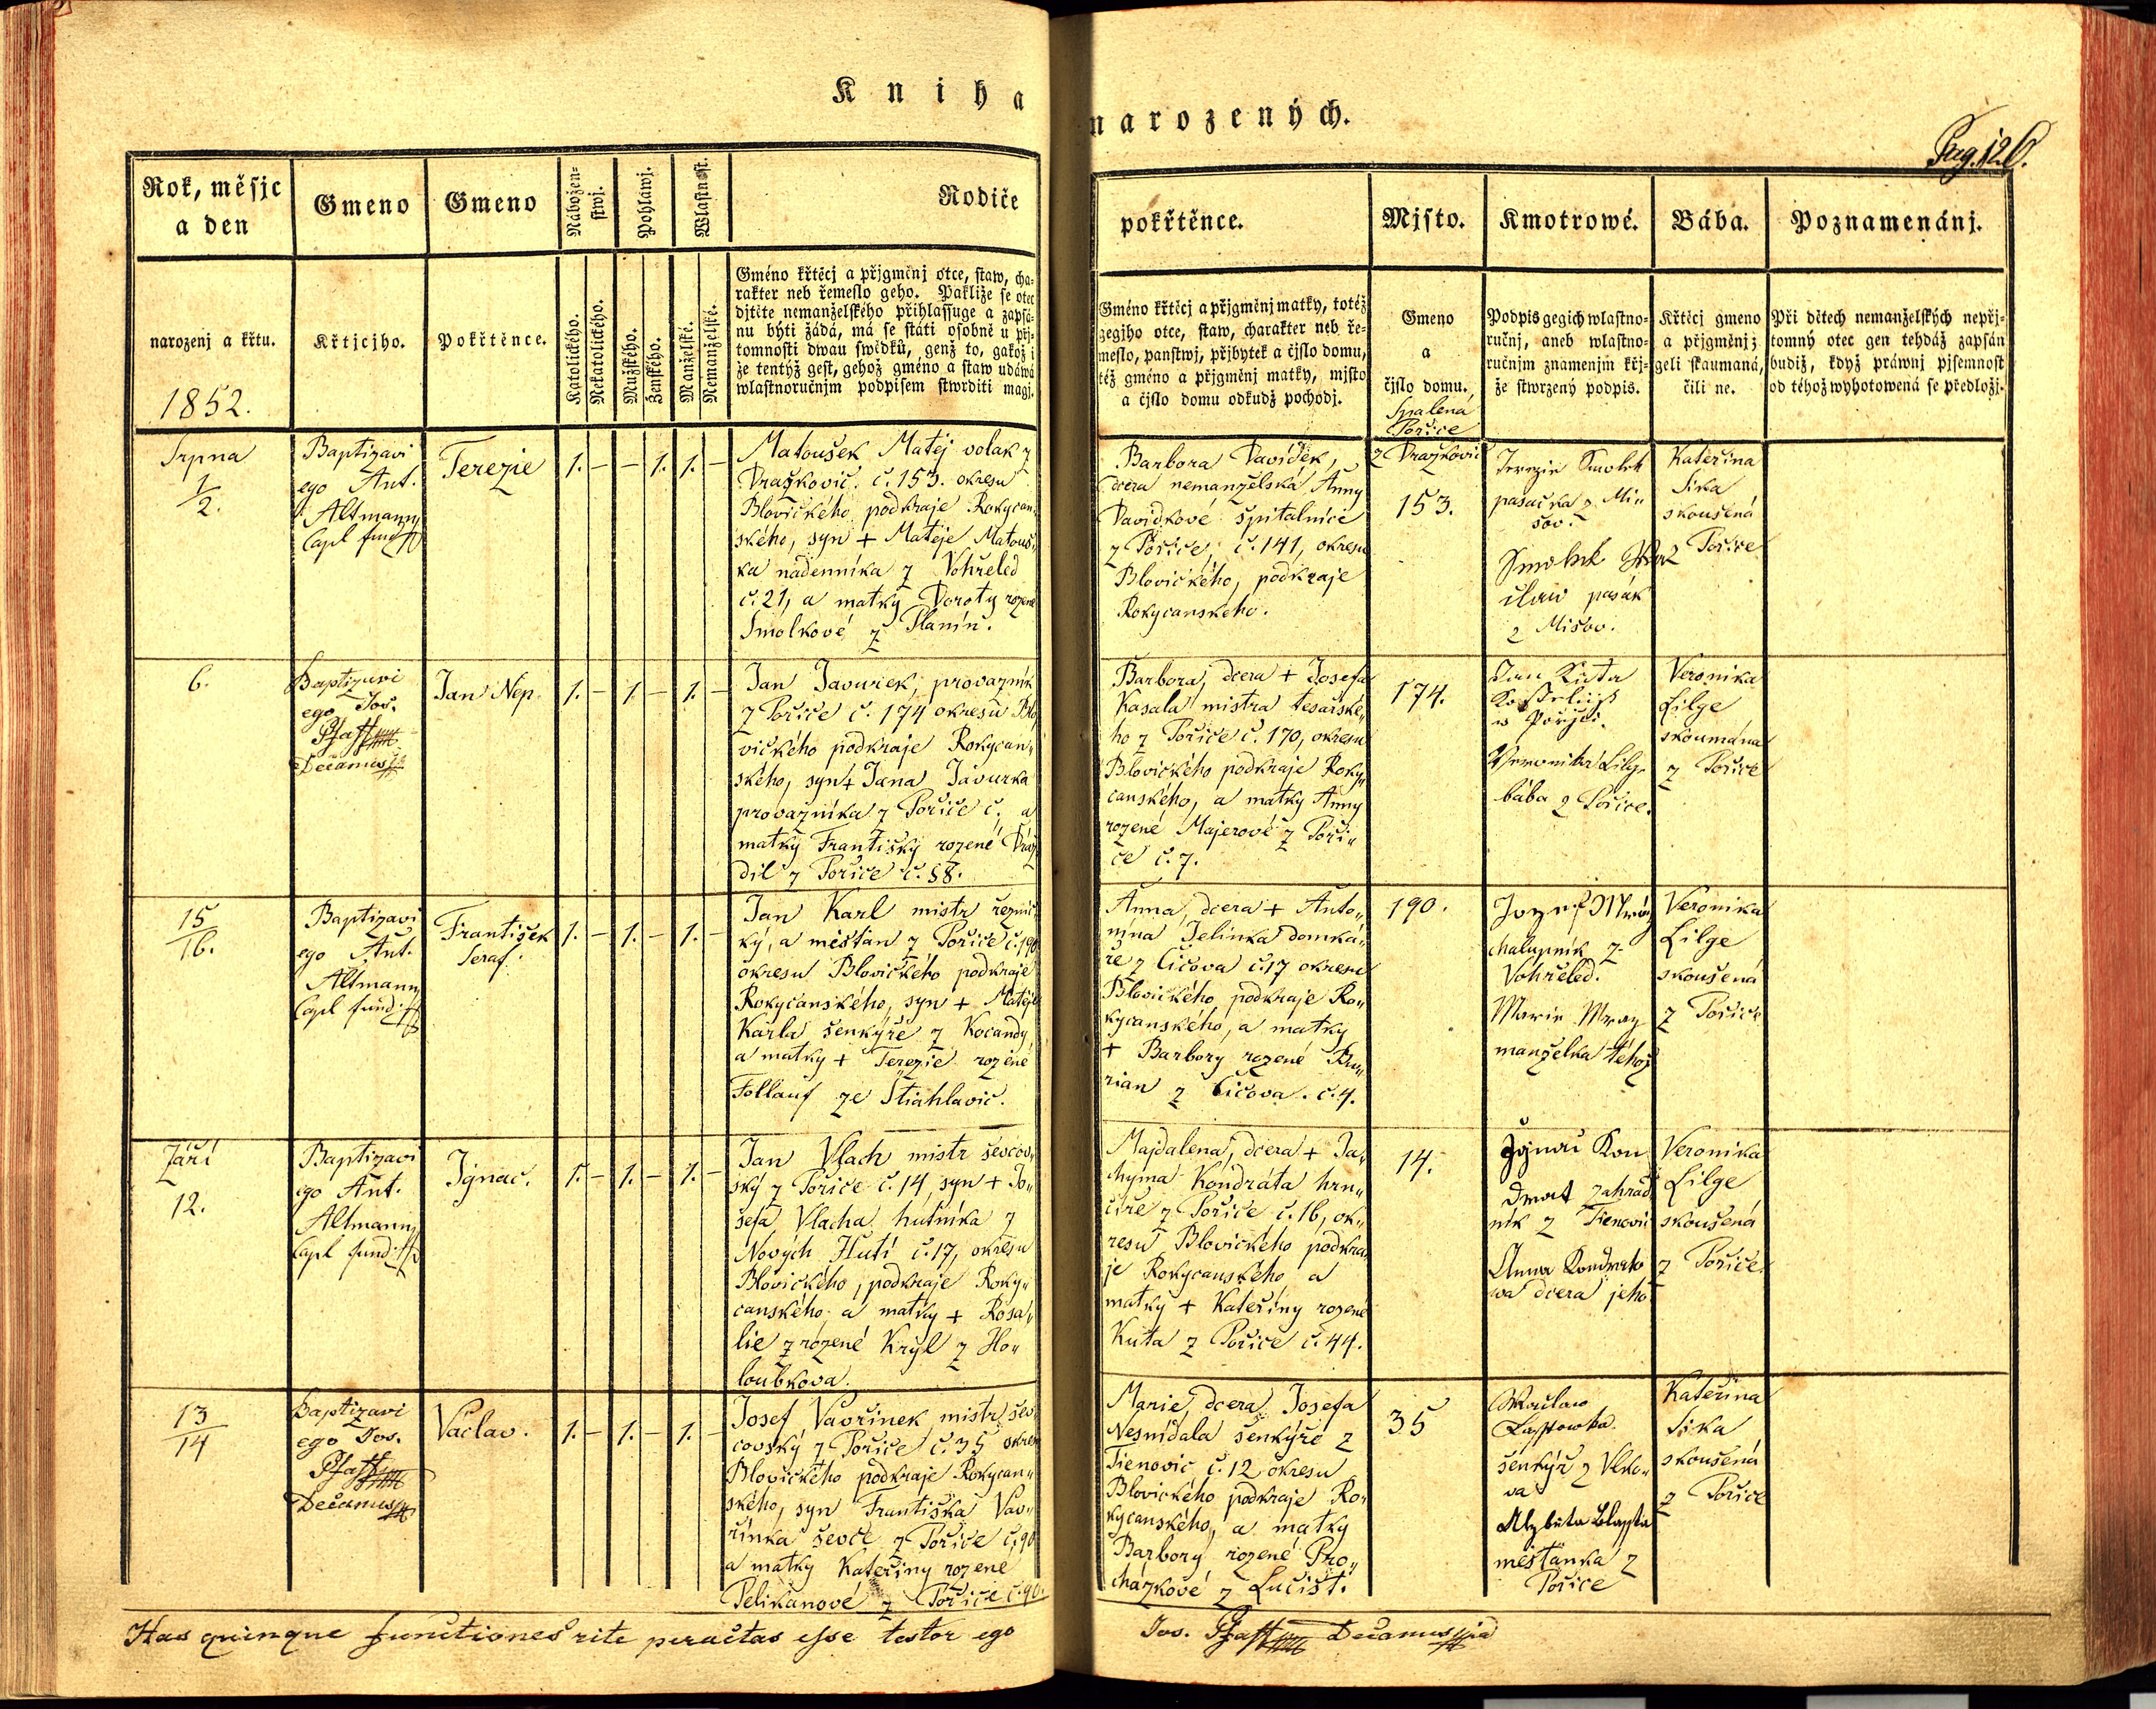 Kniha
narozených.
Pag. 126.
Rok, měsjc
a den
Gmeno
Gmeno
Nábožen-
stwj.
Pohlawj.
Wlastnost.
Rodiče
pokřtěnce.
Mjsto.
Kmotrowé.
Bába.
Poznamenánj.
narozenj a křtu.
1852.
Křtjcjho.
Pokřtěnce.
Katolického.
Nekatolického.
Mužského.
Ženského.
Manželské.
Nemanželské.
Gméno křtěcj a přjgměnj otce, staw, cha-
rakter neb řemeslo geho. Pakliže se otec
djtěte nemanželského přihlassuge a zapsá-
nu býti žádá, má se státi osobně u přj-
tomnosti dwau swědků, genž to, gakož i
že tentýž gest, gehož gméno a staw udáwá
wlastnoručnjm podpisem stwrditi magj.
Gméno křtěcj a přjgměnj matky, totéž
gegjho otce, staw, charakter neb ře-
meslo, panstwj, přjbytek a čjslo domu,
též gméno a přjgměnj matky, mjsto
a čjslo domu odkudž pocházj.
Gmeno
a
čjslo domu.
Spalená
Pořice
Podpis gegich wlastno-
ručnj, aneb wlastno-
ručnjm znamenjm křj-
že stwrzený podpis.
Křtěcj gmeno
a přjgměnj z
geli skaumaná,
čili ne.
Při dětech nemanželských nepřj-
tomný otec gen tehdáž zapsán
budiž, když práwnj pjsemnost
od téhož wyhotowená se předložj.
Srpna
1/2.
Baptizavi
ego Ant.
Altmann
Capl fund
Terezie
1. – – 1. 1. –
Matoušek Matěj volak z
Dražkovic č. 153. okresu
Blovického podkraje Rokycan„
ského, syn + Matěje Matouš„
ka nádenníka z Vohřeled
č. 21, a matky Doroty rozené
Smolkové z Planin.
Barbora Davídek,
dcera nemanželská Anny
Davídkové špitalnice
z Pořice, č. 141, okresu
Blovického, podkraje
Rokycanského.
z Dražkovic
153.
Terezie Smolek
pasačka z Mi„
šov.
Smolek
pasák
z Mišov.
Kateřina
Sika
skoušená
z Pořice
6.
Baptizavi
ego Jos.
Pfaff
Decanus
Jan Nep.
1. – 1. – 1. –
Jan Javurek, provazník
z Pořice č. 174 okresu Blo
vického podkraje Rokycan„
ského, syn + Jana Javurka
provazníka z Pořice č. a
matky Františky rozené Dráž
dil z Pořice č. 88.
Barbora, dcera + Josefa
Kasala mistra tesařské„
ho z Pořice č. 170, okresu
Blovického podkraje Roky„
canského, a matky Anny
rozené Majerové z Poři„
ce č. 7.
174.
Jan Kuta
w Pořjči.
Veronika Lilge
bába z Pořice.
Veronika
Lilge
skoumána
z Pořice
15/16.
Baptizavi
ego Ant.
Altmann
Capl fund.
František
Seraf.
1. – 1. – 1. –
Jan Karl mistr řeznic
ký, a měštan z Pořice č. 190
okresu Blovického podkraje
Rokycanského, syn + Matěje
Karla šenkýře z Kocandy
a matky + Terezie rozené
Follauf ze Štiahlavic.
Anna, dcera + Anto„
nína Jelinka domká„
ře z Čičova č. 17 okresu
Blovického podkraje Ro„
kycanského, a matky
+ Barbory rozené Bu„
rian z Čičova. č. 4.
190.
Jozef Mráz
chalupník z
Vohřeled.
Marie Mraz
manželka téhož
Veronika
Lilge
skoušená
z Pořice
Září
12.
Baptizavi
ego Ant.
Altmann
Capl fund.
Ignac.
1. – 1. – 1. –
Jan Vlach mistr ševcov„
ský z Pořice č. 14, syn + Jo„
sefa Vlacha hutníka z
Nových Hutí č. 17, okresu
Blovického, podkraje Roky„
canského a matky + Rosa„
lie z rozené Kryl z Ho„
loubkova.
Majdalena, dcera + Ja„
chyma Kondráta hrn„
číře z Pořice č. 16, ok„
resu Blovického podkra„
je Rokycanského a
matky + Kateřiny rozené
Kuta z Pořice č. 44.
14.
Ignac Kon
drat zahrad
ník z Tienovic
Anna Kondrato
wa dcera jeho
Veronika
Lilge
skoušená
z Pořice.
13/14
Baptizavi
ego Jos.
Pfaff
Decanus
Václav.
1. – 1. – 1. –
Josef Vavřínek mistr šev
covský z Pořice č. 35 okresu
Blovického podkraje Rokycan„
ského, syn Františka Vav„
řínka ševce z Pořice č. 90
a matky Kateřiny rozené
Pelikanové z Pořice č. 90.
Marie, dcera Josefa
Nesnídala šenkýře z
Tienovic č. 12 okresu
Blovického podkraje Ro„
kycanského, a matky
Barbory rozené Pro„
cházkové z Lučišt.
35
Waclaw
šenkýř z Vlko„
va
Alzběta Blassta
měštanka z
Pořice
Kateřina
Sika
skoušená
z Pořice
Has quinque functiones rite peractas esse testor ego
Jos. Pfaff Decanus